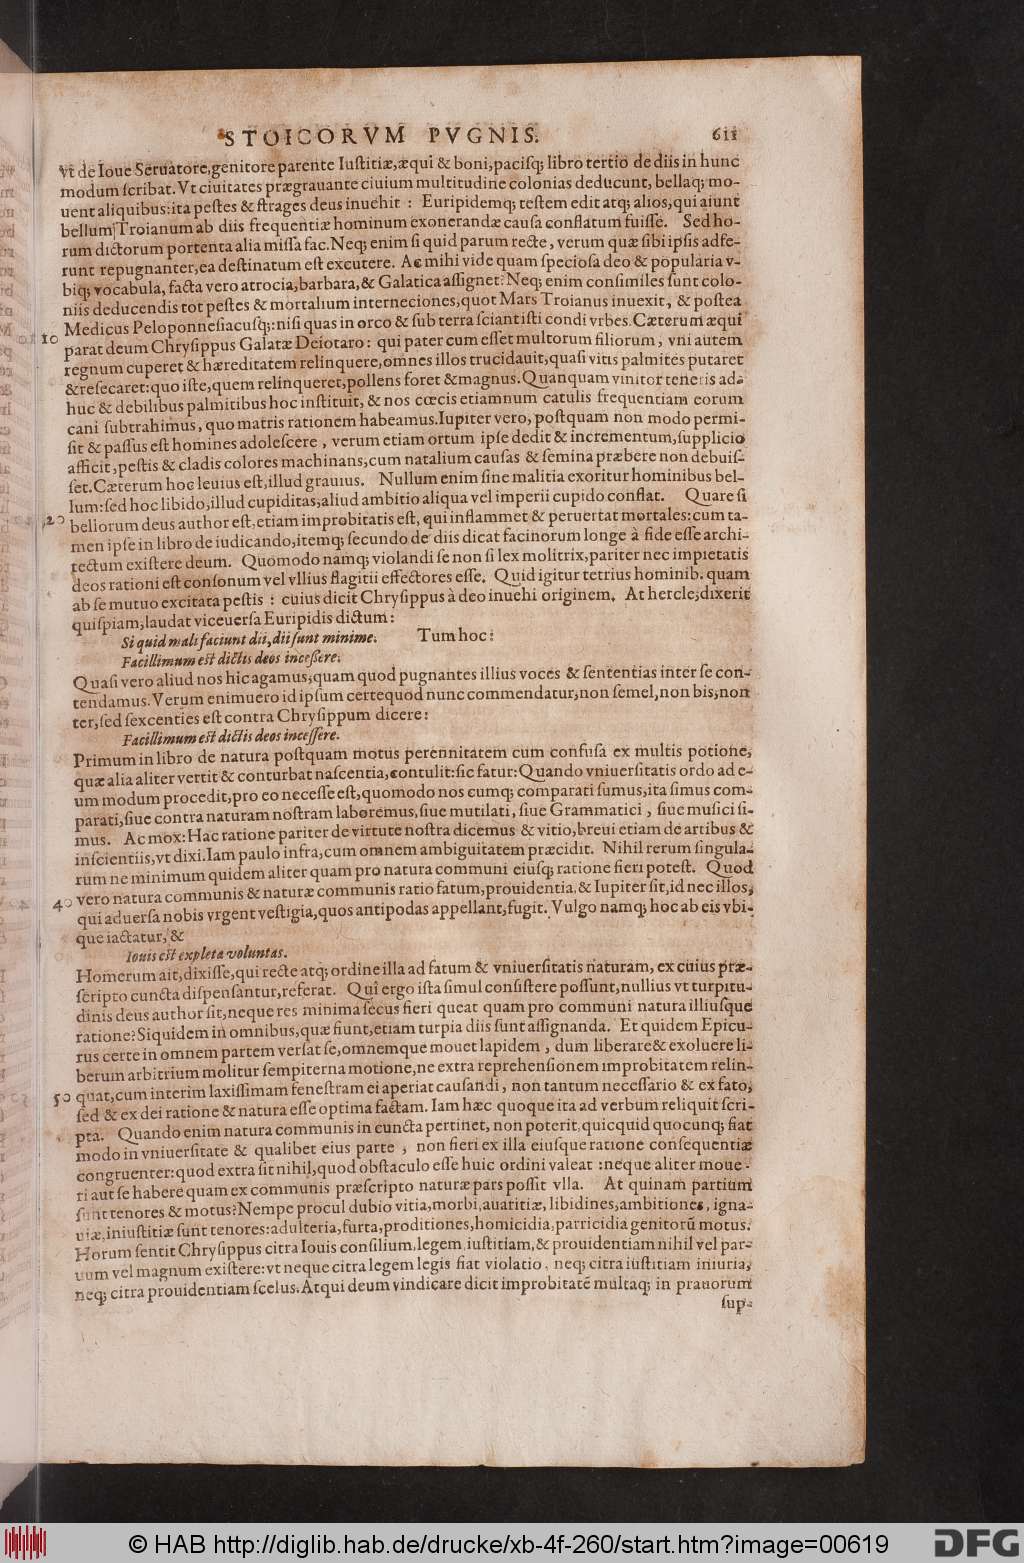 STOICORVM PVGNIS. 611
vt de Ioue Seruatore,genitore parente Iustitiæ,æqui & boni,pacisq; libro tertio de diis in hunc
modum scribat.Vt ciuitates prægrauante ciuium multitudine colonias deducunt, bellaq; mo-
uent aliquibus:ita pestes & strages deus inuehit : Euripidemq; testem edit atq; alios,qui aiunt
bellum Troianum ab diis frequentiæ hominum exonerandæ causa conflatum fuisse. Sed ho-
rum dictorum portenta alia missa fac.Neq; enim si quid parum recte, verum quæ sibi ipsis adfe-
runt repugnanter,ea destinatum est excutere. Ac mihi vide quam speciosa deo & popularia v-
biq; vocabula, facta vero atrocia,barbara,& Galatica assignet?Neq; enim consimiles sunt colo-
niis deducendis tot pestes & mortalium interneciones,quot Mars Troianus inuexit, & postea
Medicus Peloponnesiacusq;:nisi quas in orco & sub terra sciant isti condi vrbes.Cæterum æqui
10 parat deum Chrysippus Galatæ Deiotaro : qui pater cum esset multorum filiorum, vni autem
regnum cuperet & hæreditatem relinquere,omnes illos trucidauit,quasi vitis palmites putaret
& resecaret:quo iste,quem relinqueret,pollens foret & magnus.Quanquam vinitor teneris ad-
huc & debilibus palmitibus hoc instituit, & nos cœcis etiamnum catulis frequentiam eorum
cani subtrahimus, quo matris rationem habeamus.Iupiter vero, postquam non modo permi-
sit & passus est homines adolescere, verum etiam ortum ipse dedit & incrementum,supplicio
afficit,pestis & cladis colores machinans,cum natalium causas & semina præbere non debuis-
set.Cæterum hoc leuius est,illud grauius. Nullum enim sine malitia exoritur hominibus bel-
lum:sed hoc libido,illud cupiditas,aliud ambitio aliqua vel imperii cupido conflat. Quare si
20 bellorum deus author est,etiam improbitatis est, qui inflammet & peruertat mortales:cum ta-
men ipse in libro de iudicando,itemq; secundo de diis dicat facinorum longe à fide esse archi-
tectum existere deum. Quomodo namq; violandi se non si lex molitrix,pariter nec impietatis
deos rationi est consonum vel vllius flagitii effectores esse. Quid igitur tetrius hominib. quam
ab se mutuo excitata pestis : cuius dicit Chrysippus à deo inuehi originem. At hercle,dixerit
quispiam,laudat viceuersa Euripidis dictum:
Si quid mali faciunt dii,dii sunt minime. Tum hoc:
Facillimum est dictis deos incessere.
Quasi vero aliud nos hic agamus,quam quod pugnantes illius voces & sententias inter se con-
tendamus.Verum enimuero id ipsum certequod nunc commendatur,non semel,non bis,non
ter,sed sexcenties est contra Chrysippum dicere:
Facillimum est dictis deos incessere.
Primum in libro de natura postquam motus perennitatem cum confusa ex multis potione,
quæ alia aliter vertit & conturbat nascentia,contulit:sic fatur:Quando vniuersitatis ordo ad e-
um modum procedit,pro eo necesse est,quomodo nos cumq; comparati sumus,ita simus com-
parati,siue contra naturam nostram laboremus,siue mutilati, siue Grammatici, siue musici si-
mus. Ac mox: Hac ratione pariter de virtute nostra dicemus & vitio,breui etiam de artibus &
inscientiis,vt dixi.Iam paulo infra,cum omnem ambiguitatem præcidit. Nihil rerum singula-
rum ne minimum quidem aliter quam pro natura communi eiusq; ratione fieri potest. Quod
40 vero natura communis & naturæ communis ratio fatum,prouidentia,& Iupiter sit,id nec illos,
qui aduersa nobis vrgent vestigia,quos antipodas appellant,fugit. Vulgo namq; hoc ab eis vbi-
que iactatur, &
Iouis est expleta voluntas.
Homerum ait,dixisse,qui recte atq; ordine illa ad fatum & vniuersitatis naturam, ex cuius præ-
scripto cuncta dispensantur,referat. Quî ergo ista simul consistere possunt,nullius vt turpitu-
dinis deus author sit,neque res minima secus fieri queat quam pro communi natura illiusque
ratione?Siquidem in omnibus,quæ fiunt,etiam turpia diis sunt assignanda. Et quidem Epicu-
rus certe in omnem partem versat se,omnemque mouet lapidem, dum liberare & exoluere li-
berum arbitrium molitur sempiterna motione,ne extra reprehensionem improbitatem relin-
50 quat,cum interim laxissimam fenestram ei aperiat causandi, non tantum necessario & ex fato,
sed & ex dei ratione & natura esse optima factam. Iam hæc quoque ita ad verbum reliquit scri-
pta. Quando enim natura communis in cuncta pertinet, non poterit,quicquid quocunq; fiat
modo in vniuersitate & qualibet eius parte, non fieri ex illa eiusque ratione consequentiæ
congruenter:quod extra sit nihil,quod obstaculo esse huic ordini valeat :neque aliter moue-
ri aut se habere quam ex communis præscripto naturæ pars possit vlla. At quinam partium
sunt tenores & motus?Nempe procul dubio vitia,morbi,auaritiæ, libidines,ambitiones, igna-
uiæ,iniustitiæ sunt tenores:adulteria,furta,proditiones,homicidia,parricidia genitorū motus.
Horum sentit Chrysippus citra Iouis consilium,legem,iustitiam,& prouidentiam nihil vel par-
uum vel magnum existere:vt neque citra legem legis fiat violatio, neq; citra iustitiam iniuria,
neq; citra prouidentiam scelus.Atqui deum vindicare dicit improbitatē multaq; in prauorum
sup-
© HAB http://diglib.hab.de/drucke/xb-4f-260/start.htm?image=00619
DFG